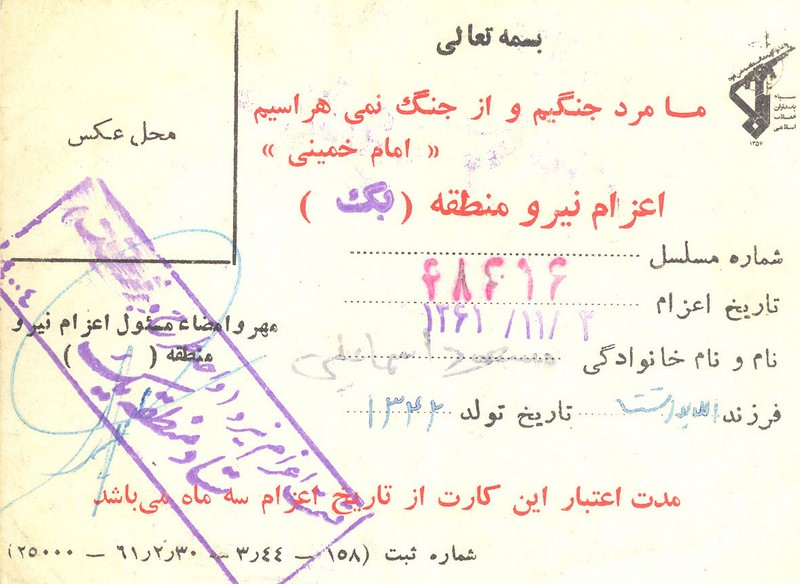 بسمه تعالی
سپاه پاسداران انقلاب اسلامی
۱۳۵۷
ما مرد جنگیم و از جنگ نمی هراسیم
« امام خمینی »
محل عکس
اعزام نیرو منطقه ( یک )
شماره مسلسل ۶۸۶۱۶
تاریخ اعزام ۱۳۶۱/۱۱/۳
مهر و امضاء مسئول اعزام نیرو
منطقه ( )
نام و نام خانوادگی
فرزند تاریخ تولد ۱۳۴۲
اعزام نیرو
مدت اعتبار این کارت از تاریخ اعزام سه ماه می‌باشد
شماره ثبت (۱۵۸ – ۳٫۴۴ – ۶۱٫۲٫۳۰ – ۲۵۰۰۰)